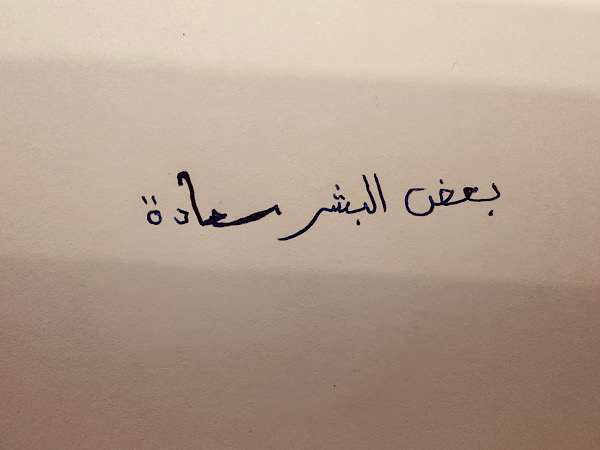 بعض البشر سعادة